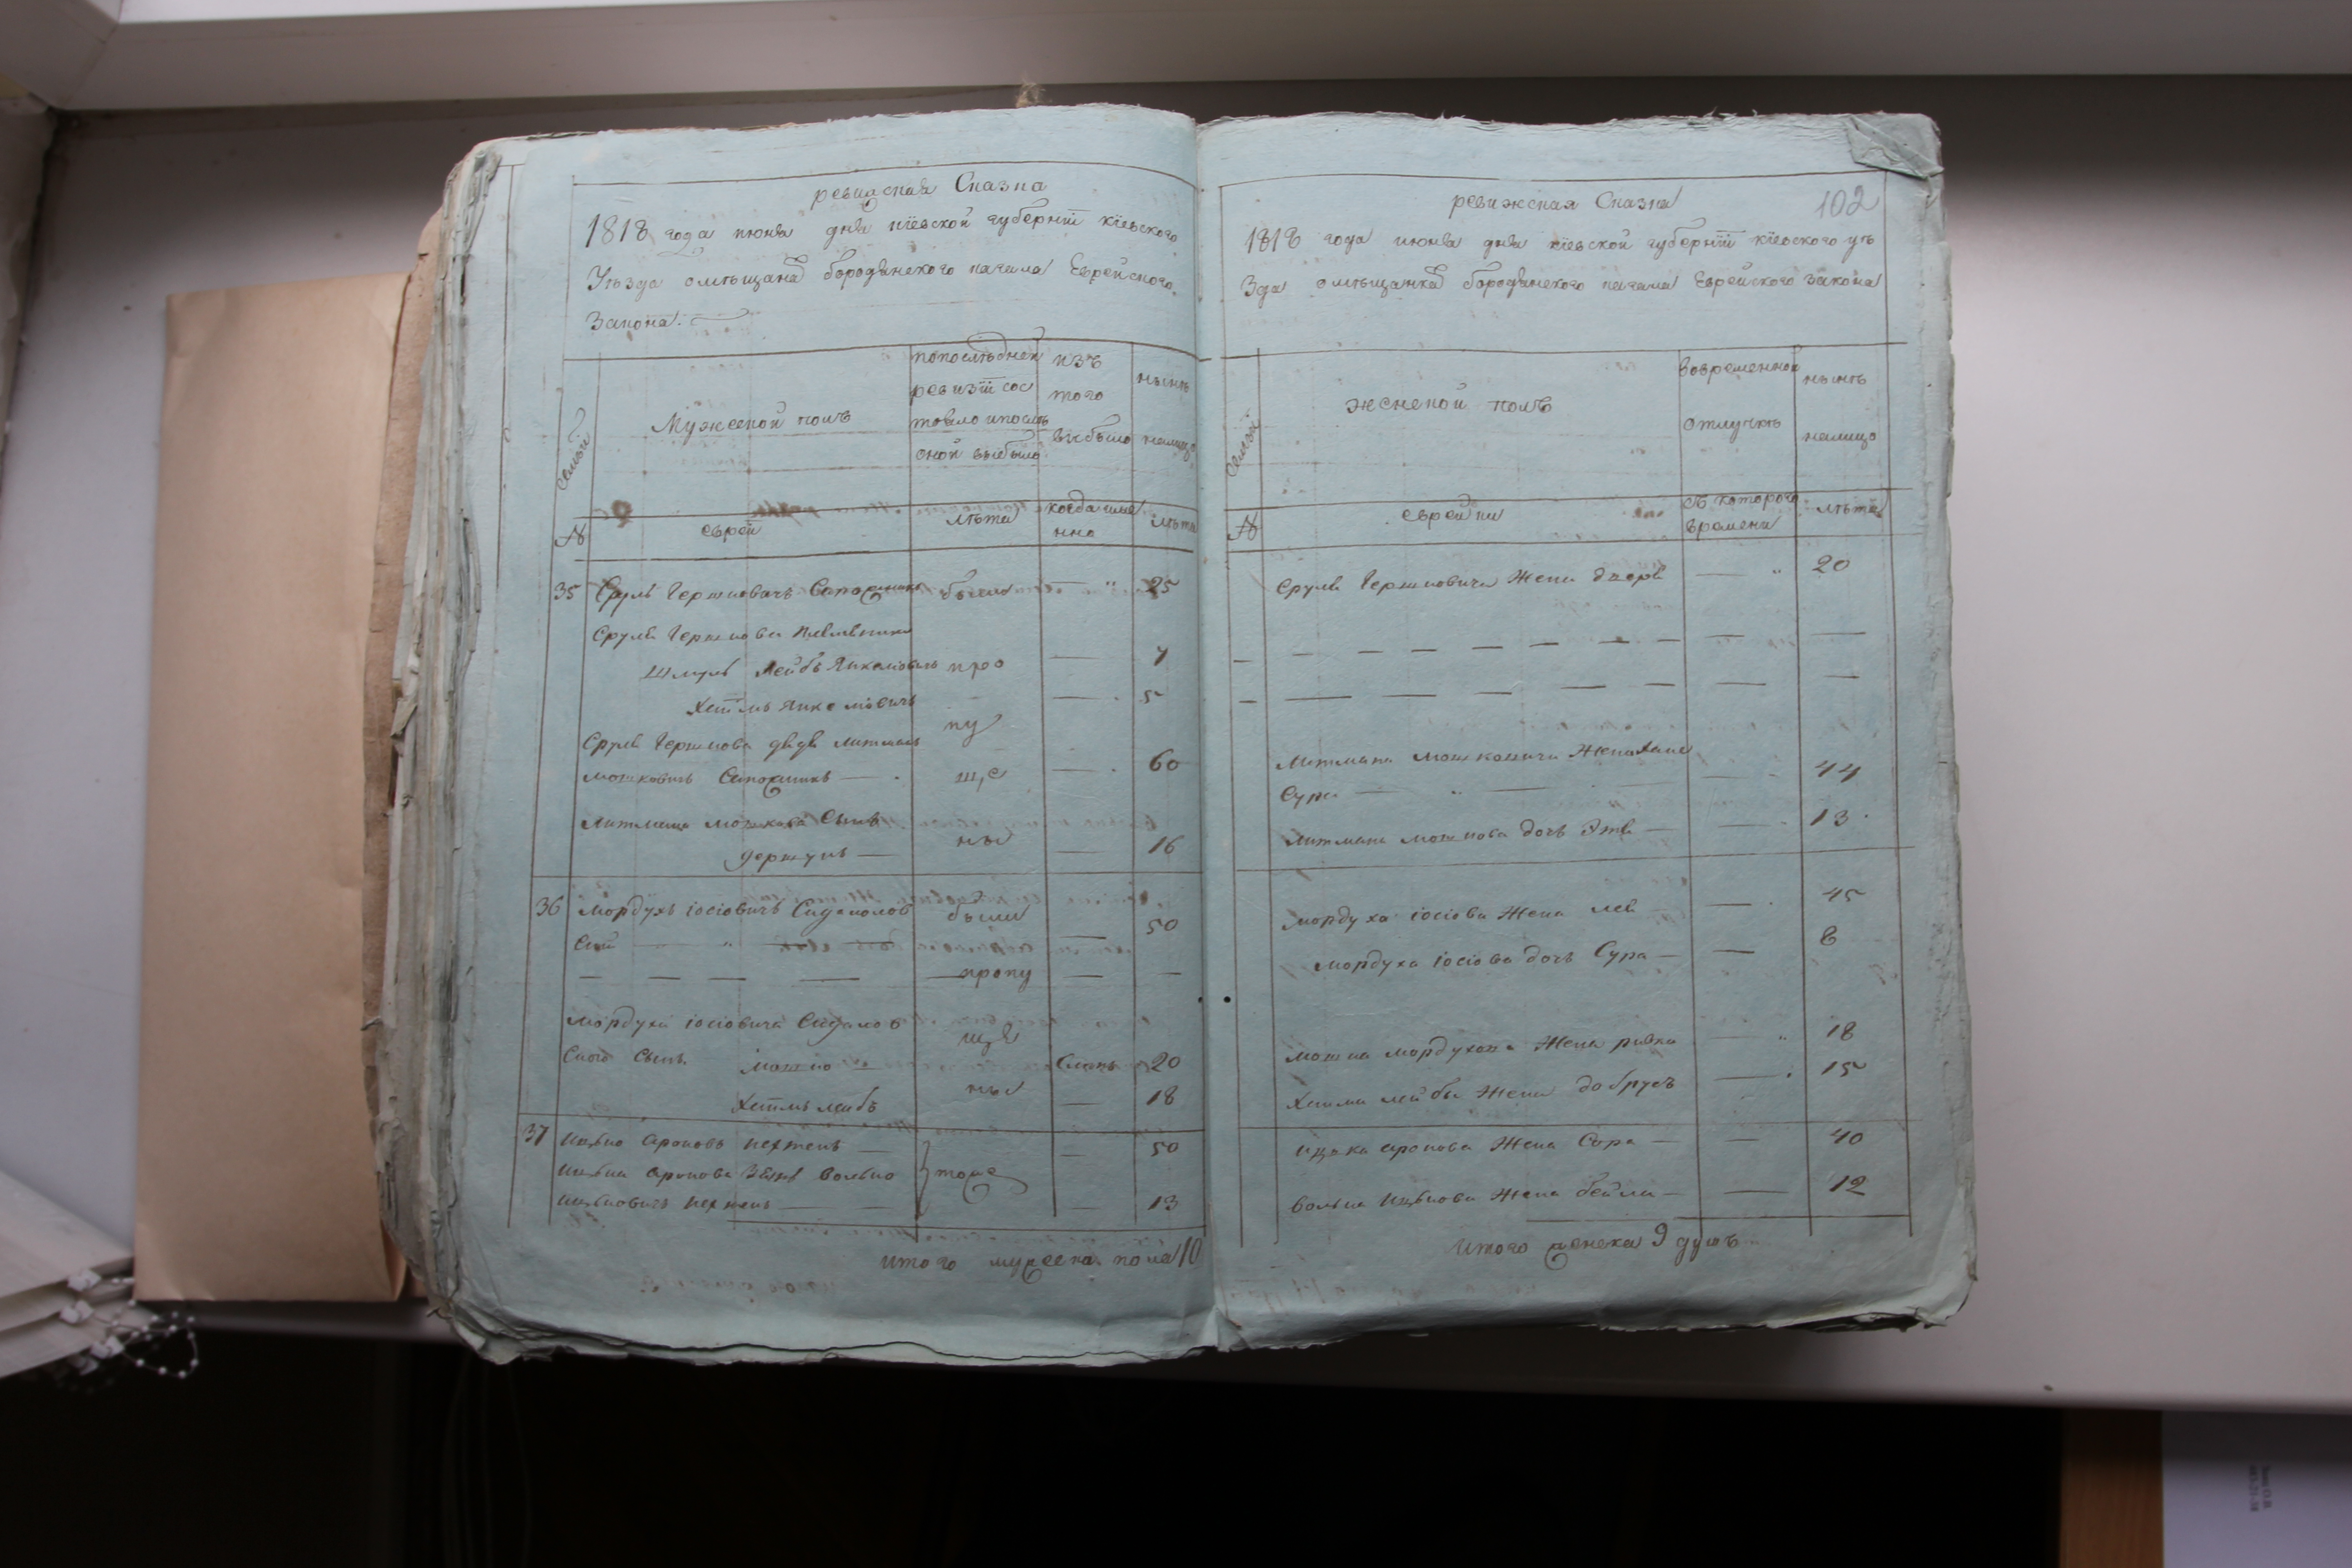 ревижская Сказка
1818 года июня дня кіевской губерніи кіевского
Уѣзда омѣщанахъ бородянского кагала Еврейского
Закона.
семьи
Мужеской полъ
попослѣдней
ревизіи сос
тояло ипослѣ
оной выбыло
изъ
того
выбыло
нынѣ
налицо
№
евреи
лѣта
когда име
нно
лѣта
35 Сруль Гершковичъ Сапожникъ были — 25
Сруля Гершкова
Шмуль Лейбъ Янкелювичъ про — 7
Хаимъ Янкелювичъ — 5
пу
Сруля Гершкова дядя Литманъ
Мошковичъ Сапожникъ — ще — 60
Литмана Мошкова Сынъ
Гершунъ — ны — 16
36 Мордухъ іосіовичъ были — 50
— — — — пропу — —
Мордуха іосіовича
Сынъ Мошко — 20
Хаимъ лейбъ ны — 18
37 Ицько Ароновъ — — 50
Ицька Аронова Волько тоже
Ицьковичъ — — — 13
итого мужеска пола 10
102
ревижская Сказка
1818 года июня дня кіевской губерніи кіевского уѣ
зда омѣщанкахъ бородянского кагала Еврейского закона
семьи
женской полъ
вовременной
отлучкѣ
нынѣ
налицо
№
еврейки
съ которого
времени
лѣта
Сруля Гершковича Жена — 20
— — — — — — — —
— — — — — — — —
Литмана Мошковича Жена
Сура — — — 44
Литмана Мошкова дочь — — 13
Мордуха іосіова Жена лея — 45
Мордуха іосіова дочь Сура — — 8
Мошка Мордухова Жена ривка — 18
Хаима лейбы Жена добрусъ — 15
Ицька Аронова Жена Сора — — 40
Волька Ицькова Жена бейла — — 12
Итого женска 9 душъ